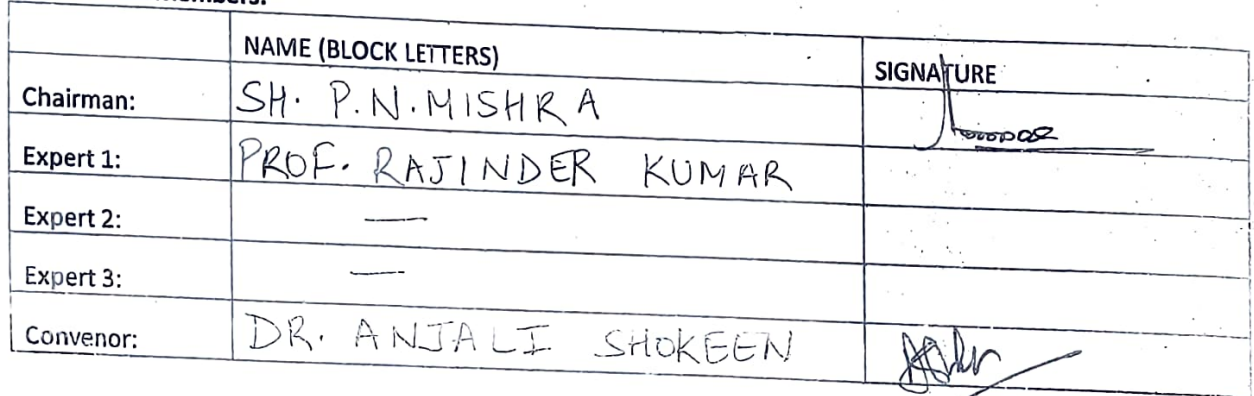 NAME (BLOCK LETTERS) SIGNATURE
Chairman: SH. P.N. MISHRA
Expert 1: PROF. RAJINDER KUMAR
Expert 2: —
Expert 3: —
Convenor: DR. ANJALI SHOKEEN